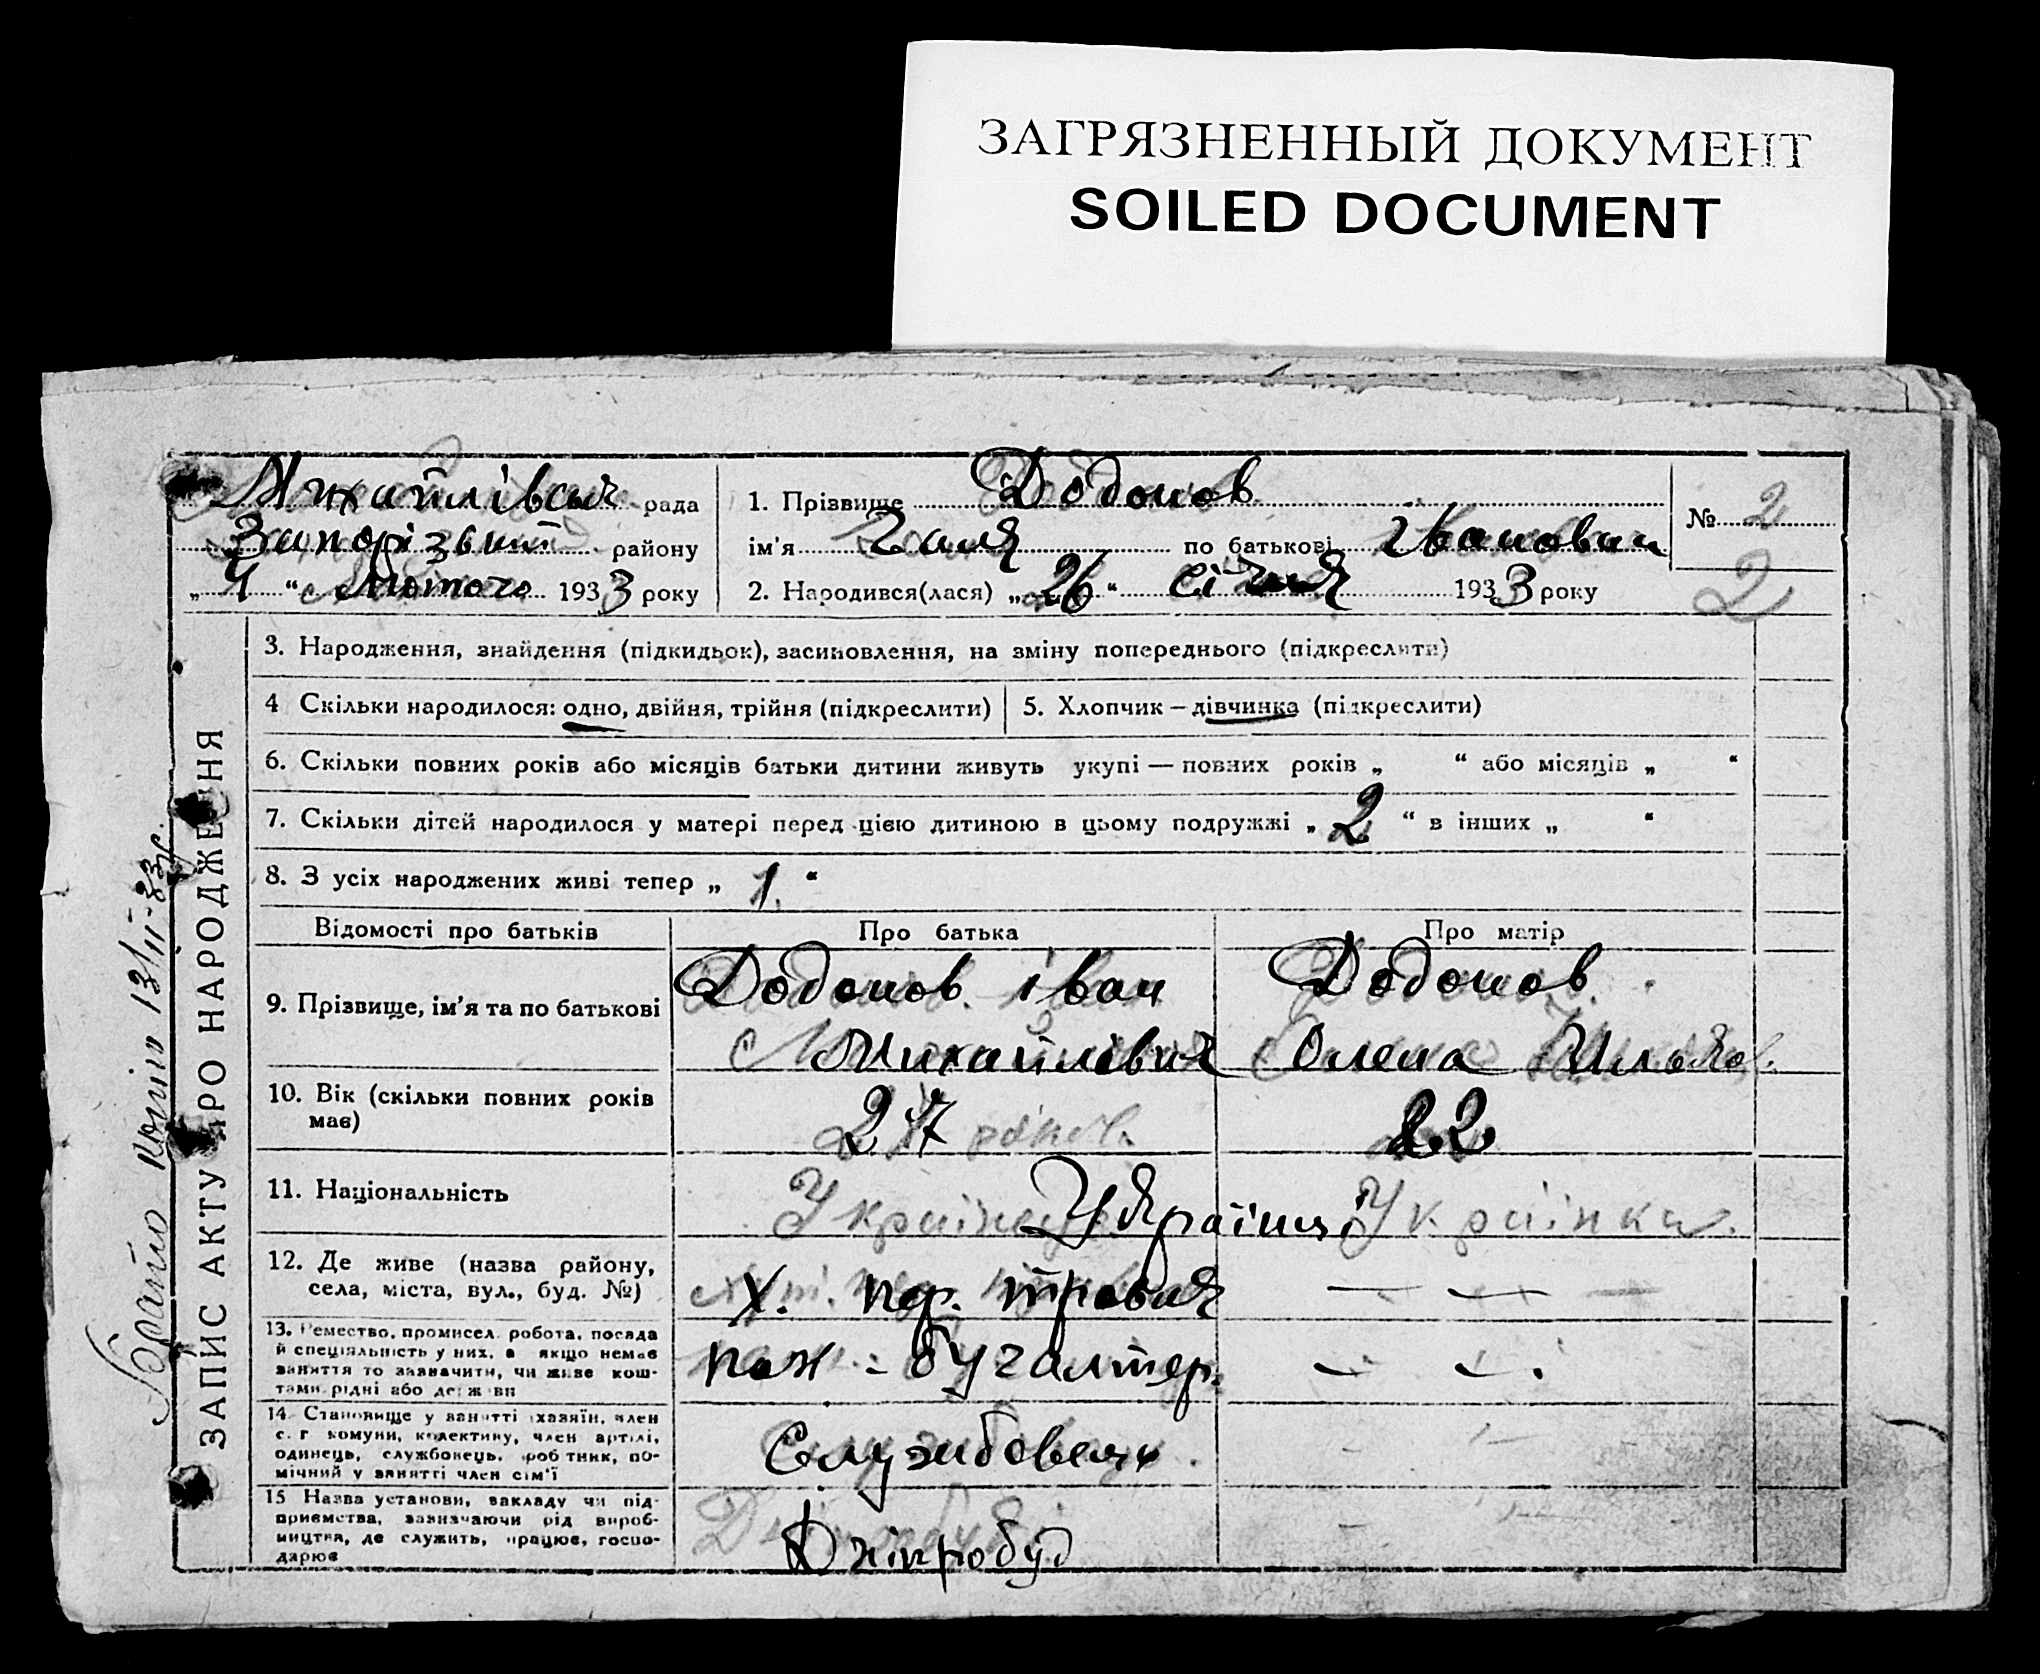 ЗАГРЯЗНЕННЫЙ ДОКУМЕНТ
SOILED DOCUMENT
Михайлівськ рада
Запорізький району
„ 4 “ Лютого 1933 року
1. Прізвище Додонов
ім'я Галя по батькові Іванован
2. Народився(лася) „ 26 “ січня 1933 року
№ 2
2
3. Народження, знайдення (підкидьок), засиновлення, на зміну попереднього (підкреслити)
4 Скільки народилося: одно, двійня, трійня (підкреслити)
5. Хлопчик – дівчинка (підкреслити)
6. Скільки повних років або місяців батьки дитини живуть укупі — повних років „ “ або місяців „ “
7. Скільки дітей народилося у матері перед цією дитиною в цьому подружжі „ 2 “ в інших „ “
8. З усіх народжених живі тепер „ 1. “
Відомості про батьків Про батька Про матір
9. Прізвище, ім'я та по батькові
Додонов іван
Михайлівич
Додонов
Олена Ильнов.
10. Вік (скільки повних років має)
27 років.
22
11. Національність
Українці
Українка.
12. Де живе (назва району,
села, міста, вул., буд. №)
Х.
— —
13. Ремество, промисел, робота, посада
й спеціяльність у них, а якщо немає
заняття то зазначити, чи живе кош-
тами рідні або держави
бугалтер.
— — .
14. Становище у занятті хазяїн, член
с. г комуни, колективу, член артілі,
одинець, службовець, робітник, по-
мічний у занятті член сім'ї
Службовець
15 Назва установи, закладу чи під-
приємства, зазначаючи рід вироб-
ництва, де служить, працює, госпо-
дарює
Дніпробуд
ЗАПИС АКТУ ПРО НАРОДЖЕННЯ
Брато копію 13/II-33р.